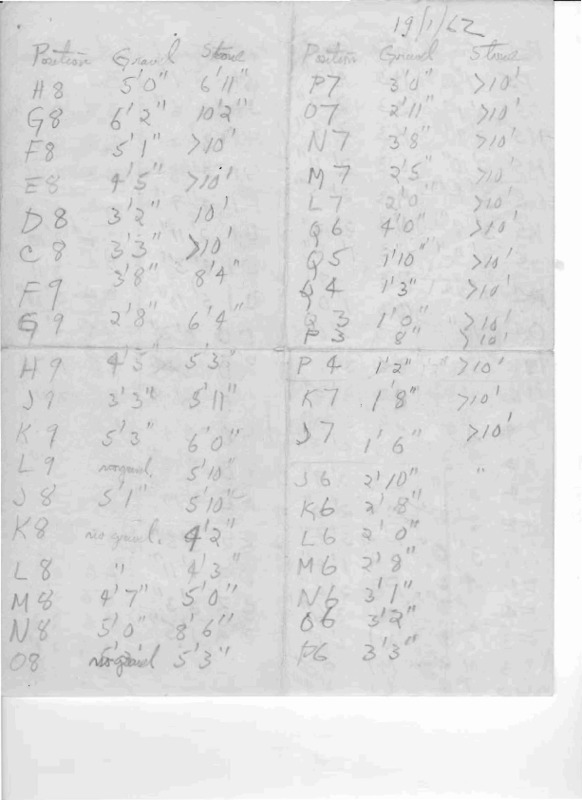 19/1/62
Position Gravel Stones
H8 5'0" 6'11"
G8 6'2" 10'2"
F8 5'1" >10'
E8 4'5" >10'
D8 3'2" 10'
C8 3'3" >10'
F9 3'8" 8'4"
G9 2'8" 6'4"
H9 4'5" 5'3"
J9 3'3" 5'11"
K9 5'3" 6'0"
L9 no gravel. 5'10"
J8 5'1" 5'10"
K8 no gravel. 4'2"
L8 " 4'3"
M8 4'7" 5'0"
N8 5'0" 8'6"
O8 no gravel 5'3"
Position Gravel Stones
P7 3'0" >10'
O7 2'11" >10'
N7 3'8" >10'
M7 2'5" >10'
L7 2'0" >10'
Q6 4'0" >10'
Q5 1'10" >10'
Q4 1'3" >10'
Q3 1'0" >10'
P3 8" >10'
P4 1'2" >10'
K7 1'8" >10'
J7 1'6" >10'
J6 2'10" "
K6 2'8"
L6 2'0"
M6 2'8"
N6 3'1"
O6 3'2"
P6 3'3"